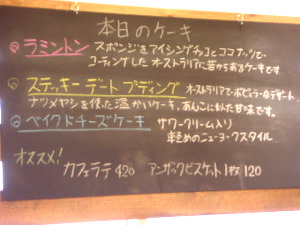 本日のケーキ
ラミントン スポンジをアイシングチョコとココナッツで
コーティングした オーストラリアに昔からあるケーキです
ステッキーデートプディング オーストラリアで ポピュラーなデザート
ナツメヤシを使った温かいケーキ、あんこに似た甘味です。
ベイクドチーズケーキ サワークリーム入り
軽めのニューヨークスタイル
オススメ!
カフェラテ 420 アンザックビスケット 1枚 120